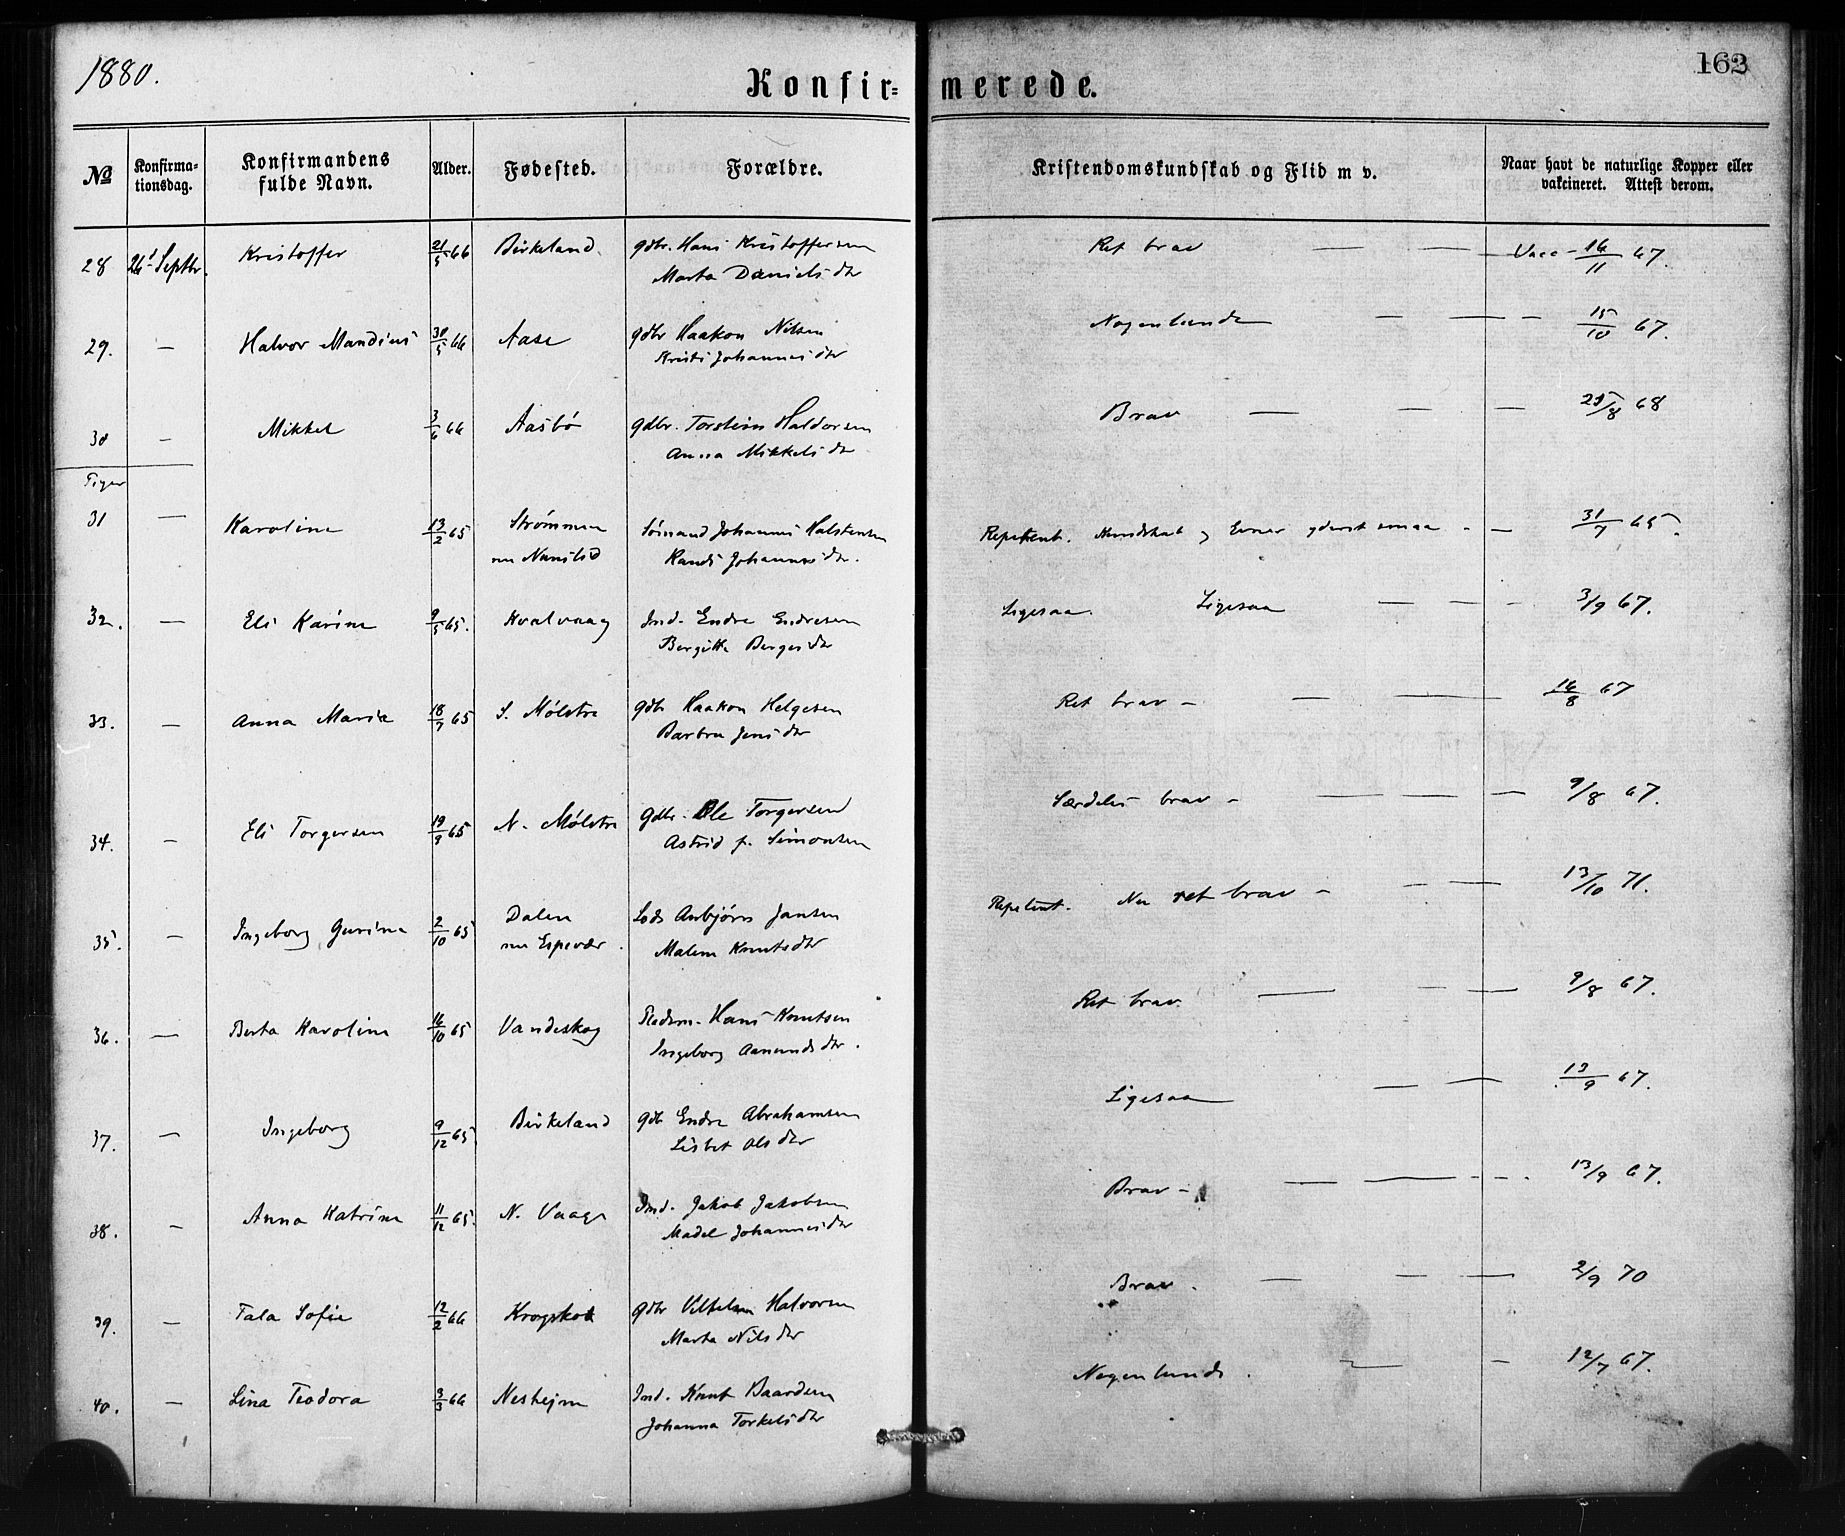 1880.
163
Konfir=
merede.
№
Konfirma-
tionsdag.
Konfirmandens
fulde Navn.
Alder.
Fødested.
Forældre.
Kristendomskundskab og Flid m v.
Naar havt de naturlige Kopper eller
vakcineret. Attest derom.
28 26' Septbr. Kristoffer 21/5 66 Birkeland gdbr. Hans Kristoffersen Ret brav — — Vacc - 16/11 67.
Marta Daniels dtr
29. — Halvor Mandius 30/5 66 Aase gdbr Haakon Nilsen Nogenlunde — — - 15/10 67.
Kristi Johannes dtr
30 — Mikkel 3/6 66 Aasbø gdbr. Torstein Haldorsen Brav — — — 25/8 68
Anna Mikkels dtr
Piger
31 — Karoline 13/2 65 Strømmen Sømand Johannes Halstensen Repetent. Kundskab og Evner yderst smaa - — 31/7 65.
nu Namslid Randi Johannes dtr.
32. — Eli Karine 9/5 65. Kvalvaag Ind. Endre Endresen Ligesaa. Ligesaa — — - 3/9 67.
Bergitte Berges dtr
33. — Anna Maria 18/7 65 S. Mølstre gdbr Haakon Helgesen Ret brav — — — 16/8 67
Barbra Jens dtr
34. — Eli Torgersen 19/9 65 N. Mølstre gdbr. Ole Torgersen Særdeles brav — — — 9/8 67.
Astrid f. Simonsen
35. — Ingeborg Gurine 2/10 65 Dalen Lods Anbjørn Jansen Repetent. Nu ret brav — — — 13/10 71.
nu Espevær. Malene Knuts dtr
36. — Berta Karoline 16/10 65 Vandaskog Pladsm. Hans Knutsen Ret brav. — — — 9/8 67.
Ingeborg Aanunds dtr.
37. — Ingeborg 9/12 65 Birkeland gdb Endre Abrahamsen Ligesaa — — 13/9 67.
Lisbet Ols dtr
38. - Anna Katrine 11/12 65. N. Vaage Ind. Jakob Jakobsen Brav — — — 13/9 67.
Madel Johannes dtr
39. — Tala Sofie 12/2 66 Krogskot gdbr Vilhelm Halvorsen Brav. — — — 2/9 70
Marta Nils dtr
40. — Lina Teodora 3/3 66 Neshejm Ind. Knut Baardsen Nogenlunde. — — 12/7 67.
Johanna Torkels dtr